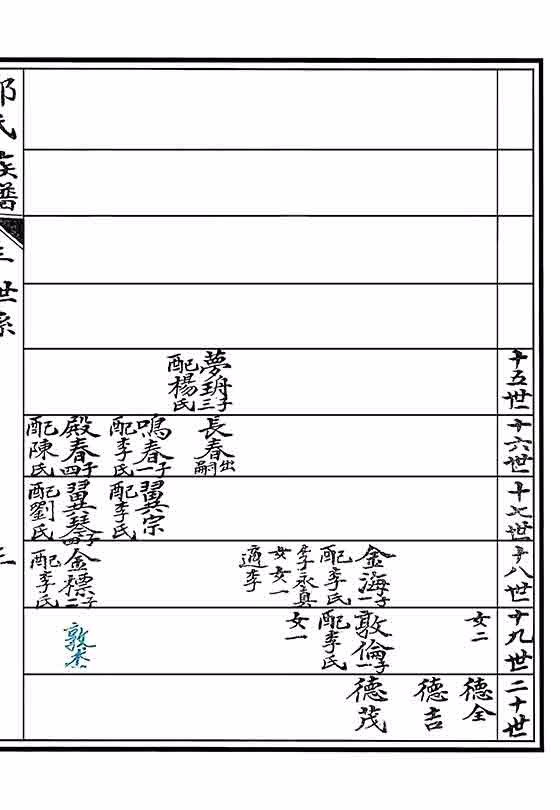 十五世
夢玬三子
配楊氏
十六世
長春出嗣
鳴春一子
配李氏
殿春四子
配陳氏
十七世
翼宗
配李氏
翼琴四子
配劉氏
十八世
金海一子
配李氏
李永真
女女一
適李
金標二子
配李氏
十九世
女二
敦倫一子
配李氏
女一
敦杰
二十世
德全
德吉
德茂
氏族譜
世系
三